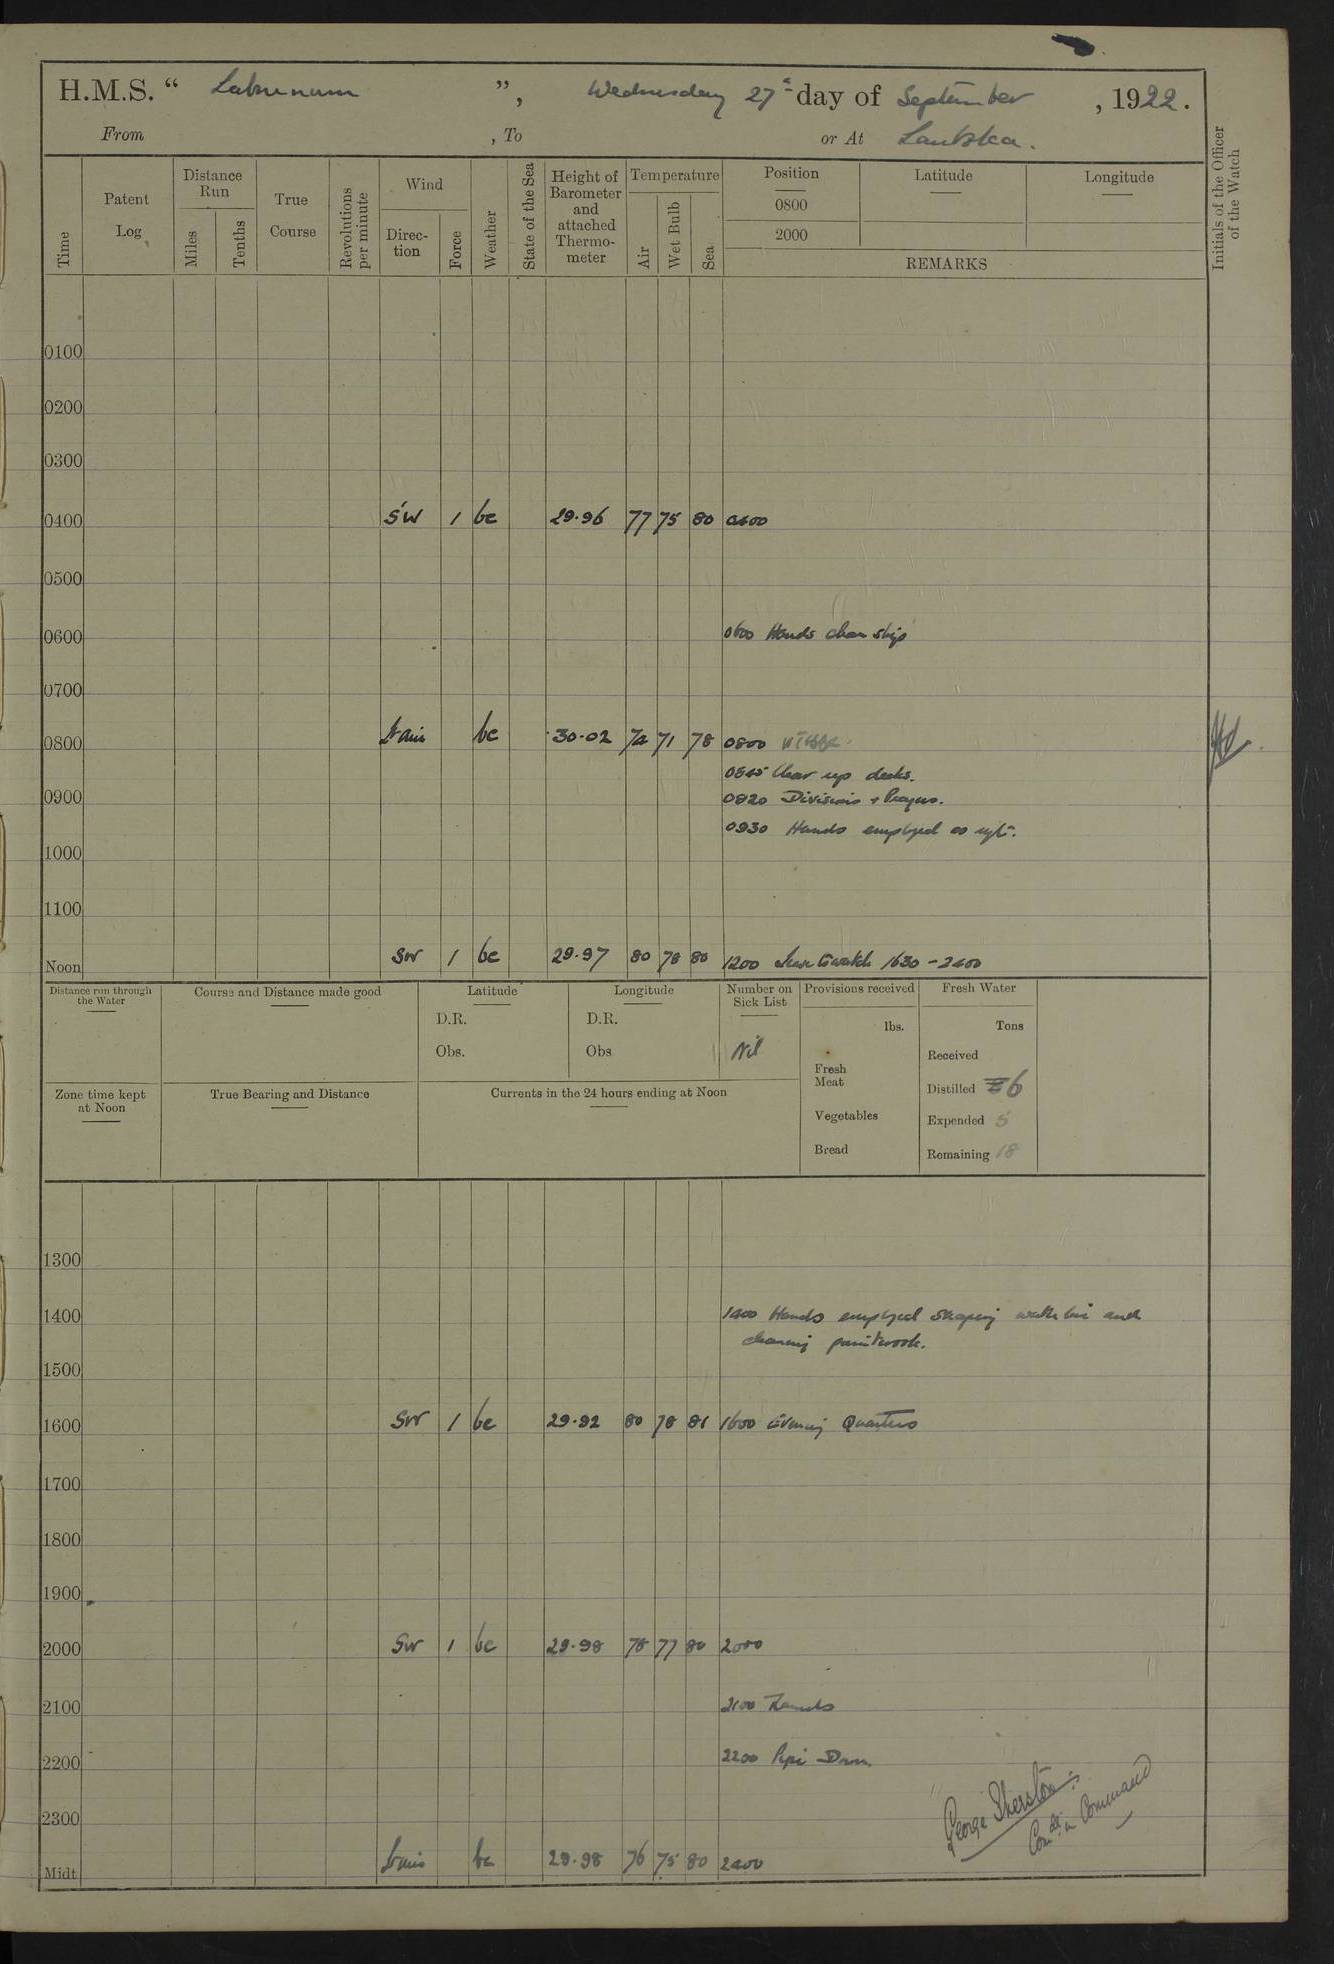 H.M.S. “ Laburnum ”, Wednesday 27th day of September, 1922.
From , To or At Lautoka.
Time
Patent Log
Distance Run
Miles
Tenths
True Course
Revolutions per minute
Wind
Direc-tion
Force
Weather
State of the Sea
Height of Barometer and attached Thermo-meter
Temperature
Air
Wet Bulb
Sea
Position
0800
2000
Latitude
Longitude
REMARKS
Initials of the Officer of the Watch
0100
0200
0300
0400 SW 1 bc 29.96 77 75 80 0400
0500
0600 0600 Hands clean ship
0700
0800 bc 30.02 72 71 78 0800
0845 Clear up decks.
0900 0920 Divisions + Prayers.
0930 Hands employed as reqt.
1000
1100
Noon SW 1 bc 29.97 80 78 80 1200 Leave to watch 1630 - 2400
Distance run through the Water
Course and Distance made good
Latitude
D.R.
Obs.
Longitude
D.R.
Obs
Number on Sick List
Nil
Provisions received
lbs.
Fresh Meat
Vegetables
Bread
Fresh Water
Tons
Received
Distilled 6
Expended 5
Remaining 18
Zone time kept at Noon
True Bearing and Distance
Currents in the 24 hours ending at Noon
1300
1400 1400 Hands employed scraping water line and
cleaning paintwork.
1500
1600 SW 1 bc 29.92 80 78 81 1600 Evening Quarters
1700
1800
1900
2000 SW 1 bc 29.98 78 77 80 2000
2100 2100 Rounds
2200 2200 Pipe Down
2300
Midt bc 29.98 76 75 80 2400
George Sherston
Comdr. in Command